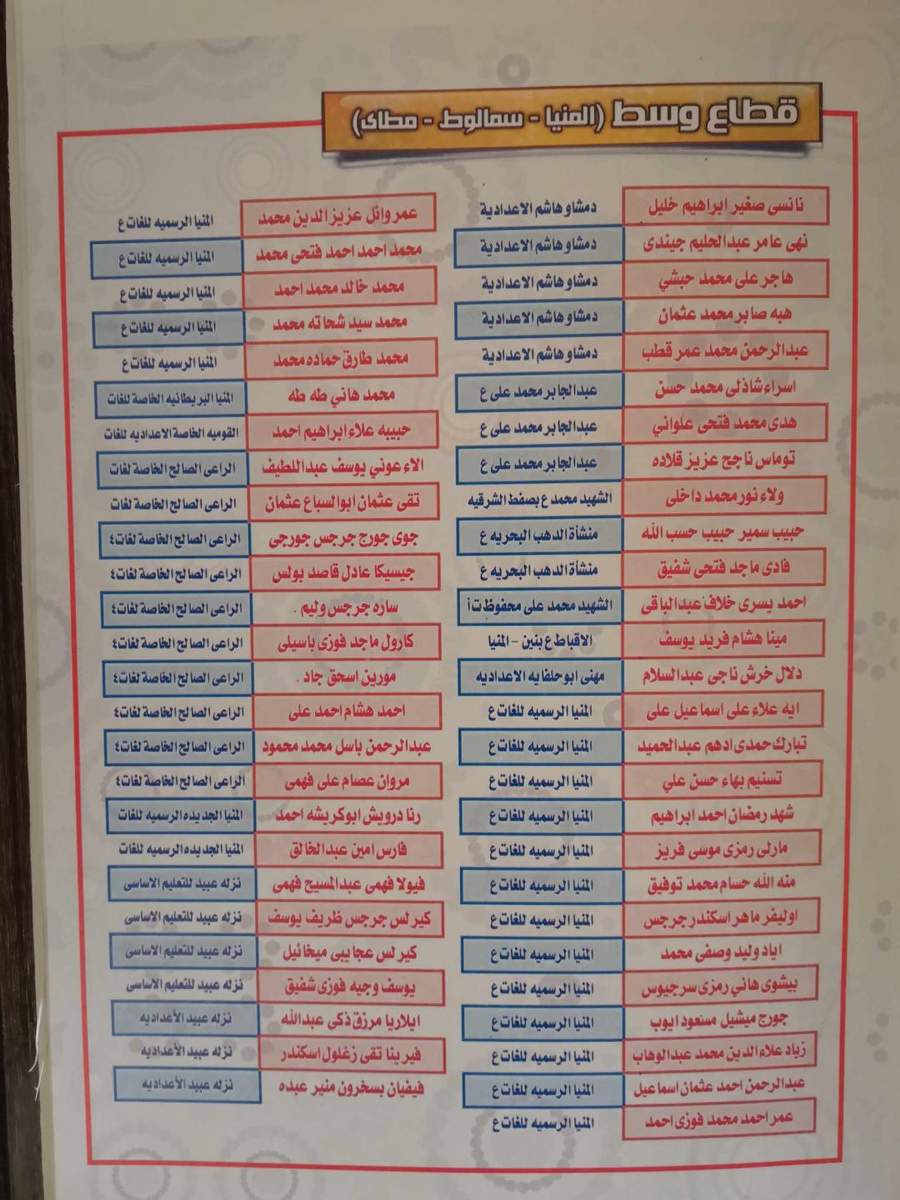 قطاع وسط (المنيا - سمالوط - مطاى)
نانسى صغير ابراهيم خليل دمشاو هاشم الاعدادية
نهى عامر عبدالحليم جيندى دمشاو هاشم الاعدادية
هاجر على محمد حبشي دمشاو هاشم الاعدادية
هبه صابر محمد عثمان دمشاو هاشم الاعدادية
عبدالرحمن محمد عمر قطب دمشاو هاشم الاعدادية
اسراء شاذلى محمد حسن عبدالجابر محمد على ع
هدى محمد فتحى علواني عبدالجابر محمد على ع
توماس ناجح عزيز قلاده عبدالجابر محمد على ع
ولاء نور محمد داخلى الشهيد محمد ع بصفط الشرقيه
حبيب سمير حبيب حسب الله منشأة الدهب البحريه ع
فادى ماجد فتحى شفيق منشأة الدهب البحريه ع
احمد يسرى خلاف عبدالباقى الشهيد محمد على محفوظ ت أ
مينا هشام فريد يوسف الاقباط ع بنين - المنيا
دلال خرش ناجى عبدالسلام مهنى ابو حلفايه الاعداديه
ايه علاء على اسماعيل على المنيا الرسميه للغات ع
تبارك حمدى ادهم عبدالحميد المنيا الرسميه للغات ع
تسنيم بهاء حسن علي المنيا الرسميه للغات ع
شهد رمضان احمد ابراهيم المنيا الرسميه للغات ع
مارلى رمزى موسى فريز المنيا الرسميه للغات ع
منه الله حسام محمد توفيق المنيا الرسميه للغات ع
اوليفر ماهر اسكندر جرجس المنيا الرسميه للغات ع
اياد وليد وصفى محمد المنيا الرسميه للغات ع
بيشوى هاني رمزى سرجيوس المنيا الرسميه للغات ع
جورج ميشيل مسعود ايوب المنيا الرسميه للغات ع
زياد علاء الدين محمد عبدالوهاب المنيا الرسميه للغات ع
عبدالرحمن احمد عثمان اسماعيل المنيا الرسميه للغات ع
عمر احمد محمد فوزى احمد المنيا الرسميه للغات ع
عمر وائل عزيز الدين محمد المنيا الرسميه للغات ع
محمد احمد احمد فتحى محمد المنيا الرسميه للغات ع
محمد خالد محمد احمد المنيا الرسميه للغات ع
محمد سيد شحاته محمد المنيا الرسميه للغات ع
محمد طارق حماده محمد المنيا الرسميه للغات ع
محمد هاني طه طه المنيا البريطانيه الخاصة للغات
حبيبه علاء ابراهيم احمد القوميه الخاصة الاعداديه للغات
الاء عوني يوسف عبداللطيف الراعى الصالح الخاصة لغات
تقى عثمان ابوالسباع عثمان الراعى الصالح الخاصة لغات
جوى جورج جرجس جورجى الراعى الصالح الخاصة لغات٤
جيسيكا عادل قاصد بولس الراعى الصالح الخاصة لغات٤
ساره جرجس وليم . الراعى الصالح الخاصة لغات٤
كارول ماجد فوزى باسيلى الراعى الصالح الخاصة لغات٤
مورين اسحق جاد . الراعى الصالح الخاصة لغات٤
احمد هشام احمد على الراعى الصالح الخاصة لغات٤
عبدالرحمن باسل محمد محمود الراعى الصالح الخاصة لغات٤
مروان عصام على فهمى الراعى الصالح الخاصة لغات٤
رنا درويش ابوكريشه احمد المنيا الجديده الرسميه للغات
فارس امين عبدالخالق المنيا الجديده الرسميه للغات
فيولا فهمى عبدالمسيح فهمى نزله عبيد للتعليم الاساسى
كيرلس جرجس ظريف يوسف نزله عبيد للتعليم الاساسى
كيرلس عجايبى ميخائيل نزله عبيد للتعليم الاساسى
يوسف وجيه فوزى شفيق نزله عبيد للتعليم الاساسى
ايلاريا مرزق ذكى عبدالله نزله عبيد الأعداديه
فيرينا تقى زغلول اسكندر نزله عبيد الأعداديه
فيفيان بسخرون منير عبده نزله عبيد الأعداديه